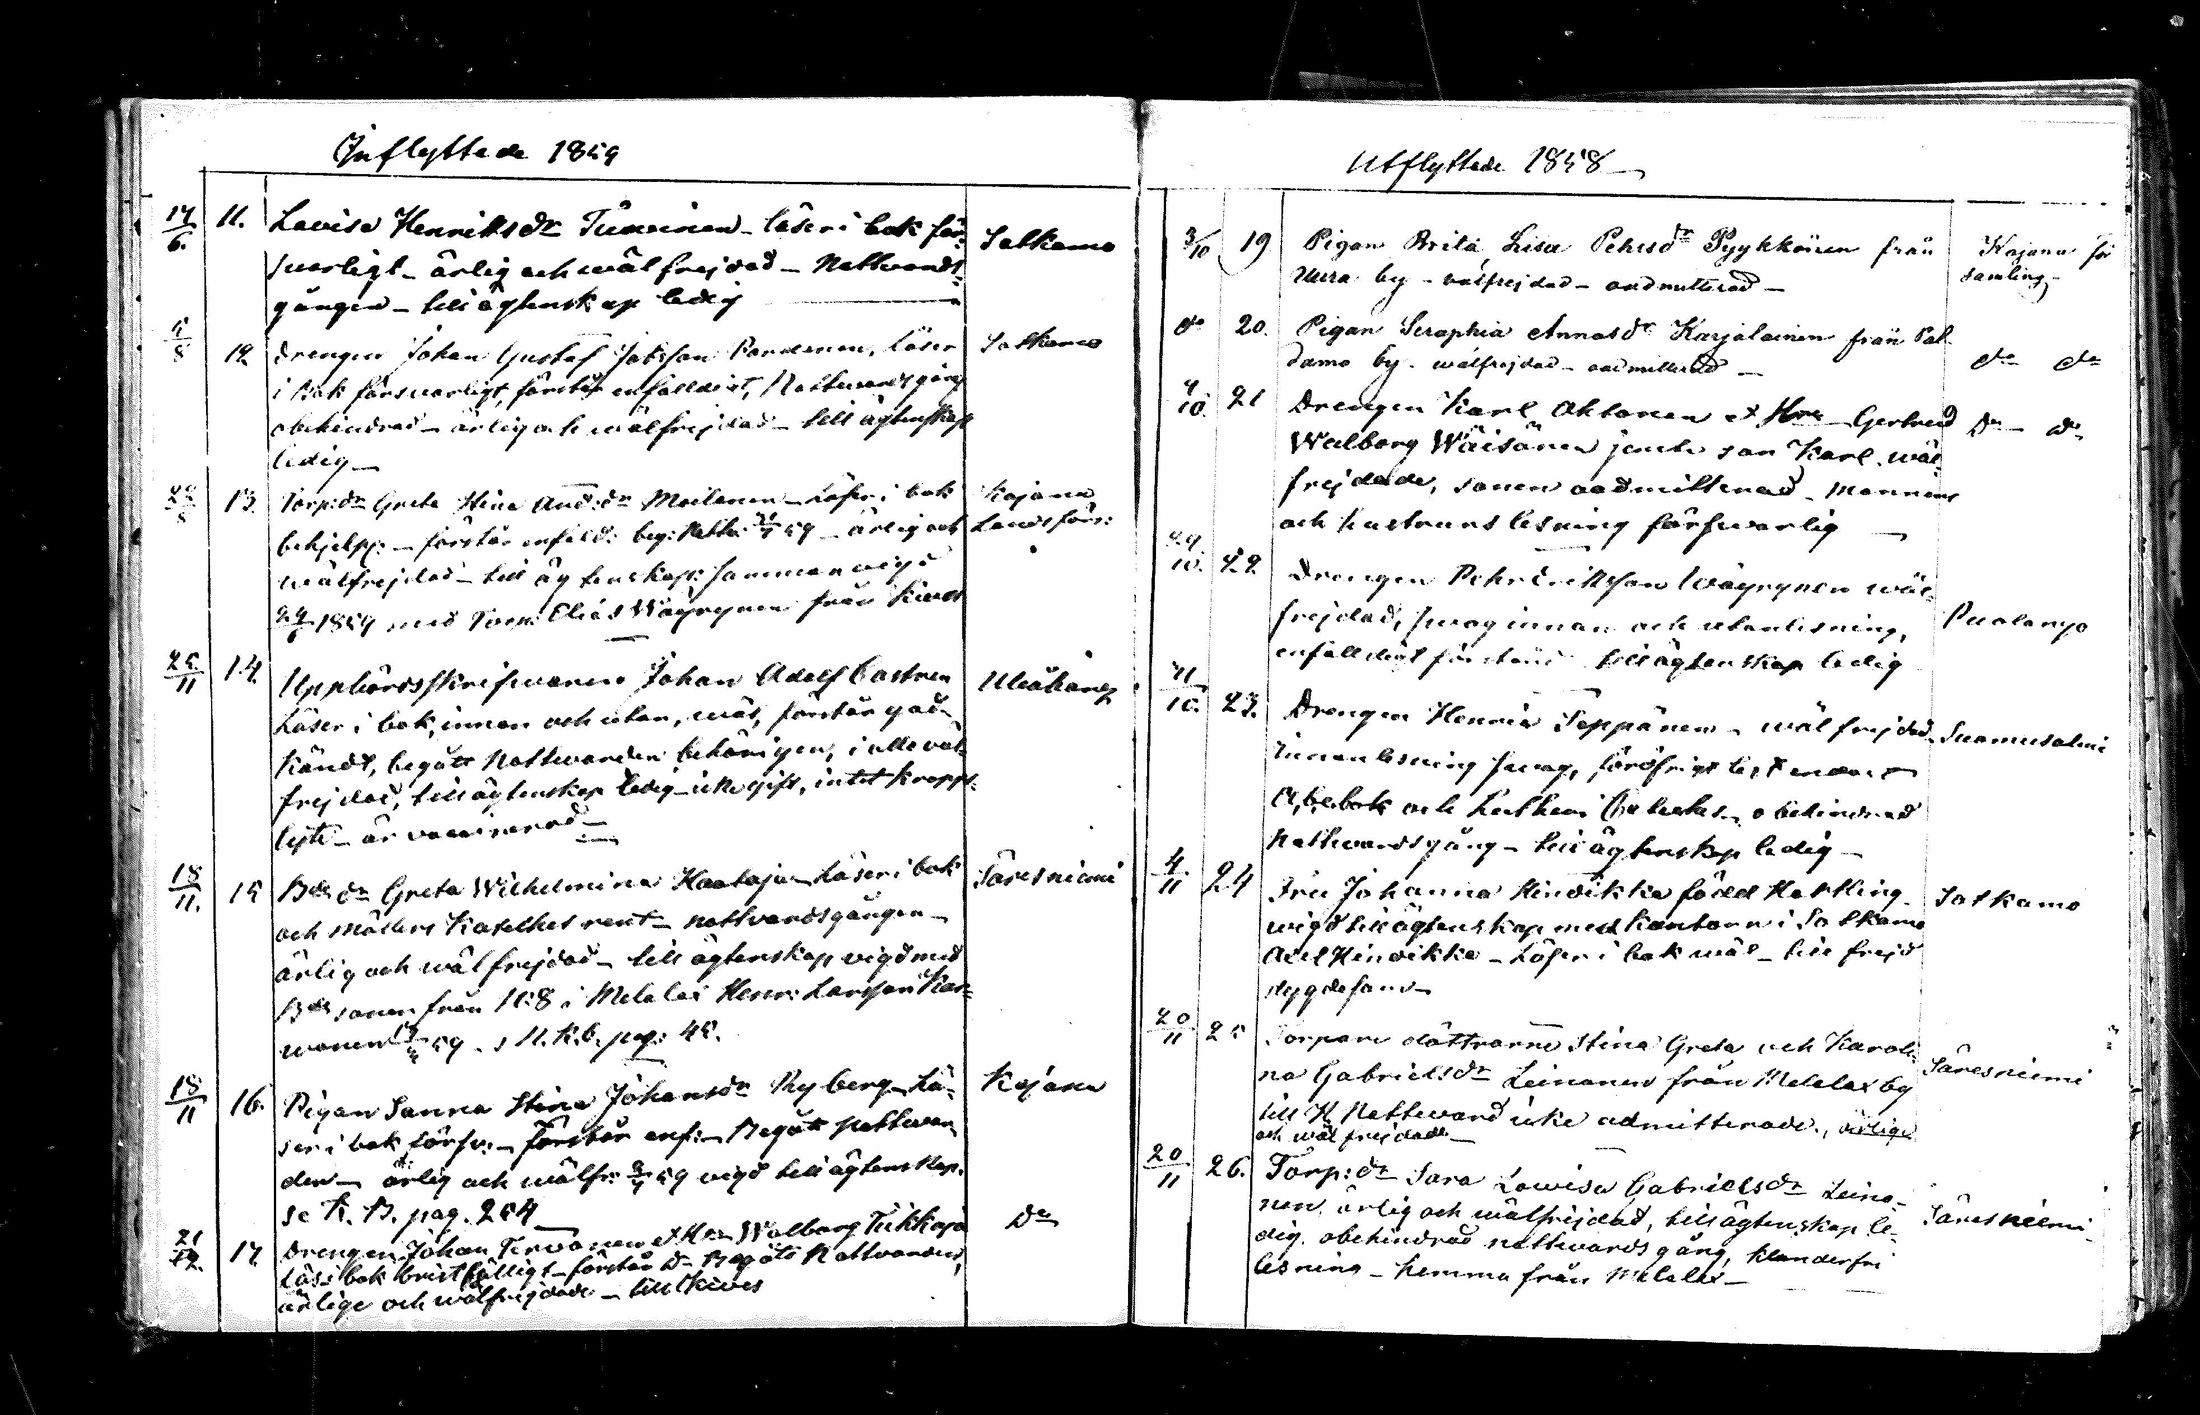 Inflyttade 1859
17/6. 11. Lovisa Henriksdr Timoinen - läser i bok för- Sotkamo
svarligt - ärlig och wälfrejdad - Nattvards-
gången - till ägtenskap ledig
5/8 12 Drengen Johan Gustaf Jaksson läser Sotkamo
i Bok försvarligt, förstår enfaldigt, Nattvardsgång
obehindrad - ärlig och wälfrejdad - till ägtenskap
ledig -
13. Torp:dr Greta Stina And:dr Moilanen - Läser i bok Kajana
behjelpp: - förstår enfald: beg: Nattv: 59 - ärlig och Landsförs:
wälfrejdad - till ägtenskap: sammanvigd
1859 med Torp: Elias Wäyrynen från Kives
25/11 14 Uppbördsskrifvaren Johan Adolf Castren Uleåborg
Läser i bok, innan och utan, wäl, förstår god-
kändt, begått Nattvarden behörigen, i allo väl-
frejdad, till ägtenskap ledig - icke gift, intet kropps-
lyte - är vaccinerad -
18/11. 15 Bdedr Greta Wilhelmina Kaataja - Läser i bok Säresniemi
och Möllers Katekhes rent - nattvardsgången -
ärlig och wälfrejdad - till ägtenskap vigd med
Bde sonen från N:8 i Melalax Henr: Larsson Kar-
wonen 59. s N.K.b. pag: 45.
18/11 16. Pigan Sanna Stina Johansdr Ryberg - Lä- Kajana
ser i bok förfsv: - förstår enf: - Begått nattvar
den - ärlig och wälfr: 59 vigd till ägtenskap.
se K. B. pag. 254
21 17. Drengen Johan Terwonen et Hru Walborg Tikkaja Do
Läs: i bok bristfälligt - förstår Do - Begått Nattvarden,
ärlige och wälfrejdade - till Kives
Utflyttade 1858 -
3/10 19 Pigan Brita Lisa Pehrsdr Pyykkönen från Kajana för
Mera by - wälfrejdad - oadmitterad - samling -
do 20. Pigan Seraphia Annasdr Karjalainen från Pal-
damo by. wälfrejdad - oadmitterad - do do
4/10. 21 Drengen Karl Oktonen et Hru Gertrud Do - do
Walborg Wäisänen jemte son Karl. wäl-
frejdade, sonen oadmitterad - Mannens
och Hustruns lesning försvarlig -
29/10. 22 Drengen Pehr Eriksson Wäyrynen wäl- Puolango
frejdad, svag innan och utanlesning,
enfaldigt förstånd till ägtenskap ledig
10. 23. Drengen Henric Seppänen - wälfrejdad - Suomusalmi
Innanlesning svag, föröfrigt lest endast
A,b,c bok och Lutheri Cateches - obehindrad
Nattvardsgång - till ägtenskap ledig -
4/11 24 Fru Johanna Hindikka född Hartling Sotkamo
wigd till ägtenskap med Kantorn i Sotkamo
Axel Hindikka - Läser i bok wäl - till frejd
dygdesam -
20/11 25 Torpare döttrarne Stina Greta och Karoli-
na Gabrielsdr Leinonen från Melalax by Säresniemi
till H Nattvard icke admitterade, ärliga
och wäl frejdade -
20/11 26. Torp:dr Sara Lowisa Gabrielsdr Leino-
nen, ärlig och wälfrejdad, till ägtenskap le- Säresniemi -
dig. obehindrad nattvardsgång, klanderfri
lesning - hemma från Melalax -